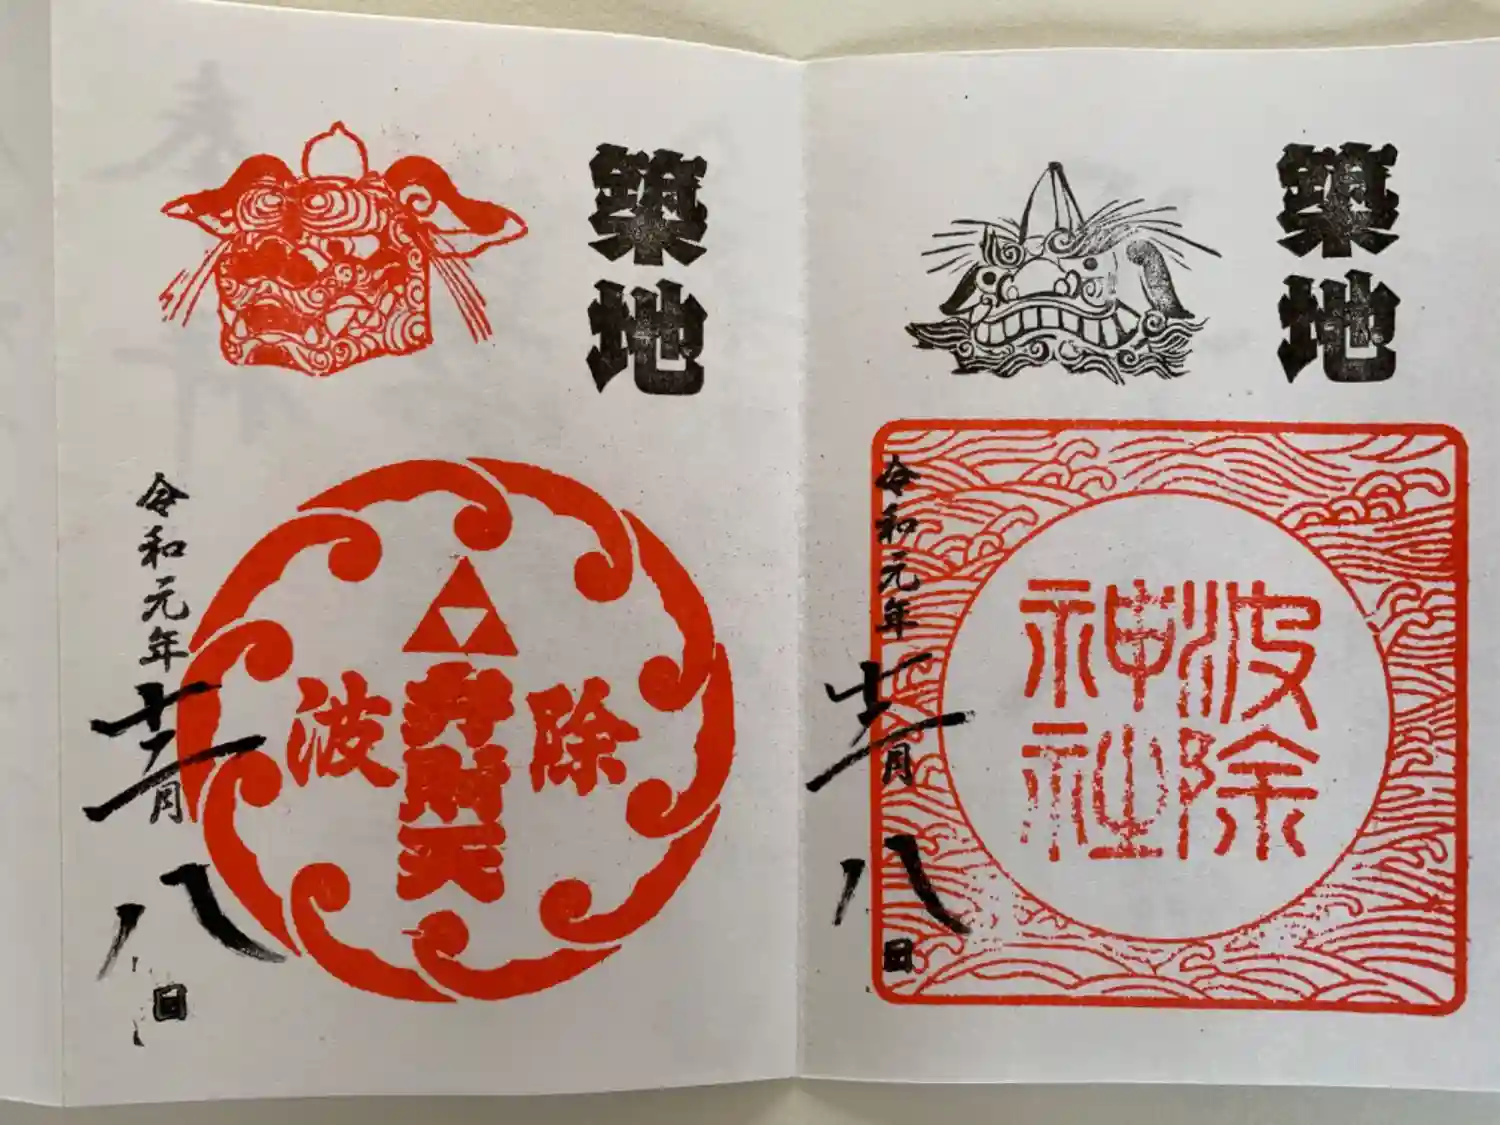 築地
波除
神社
令和元年十二月八日
築地
波除
弁財天
令和元年十二月八日